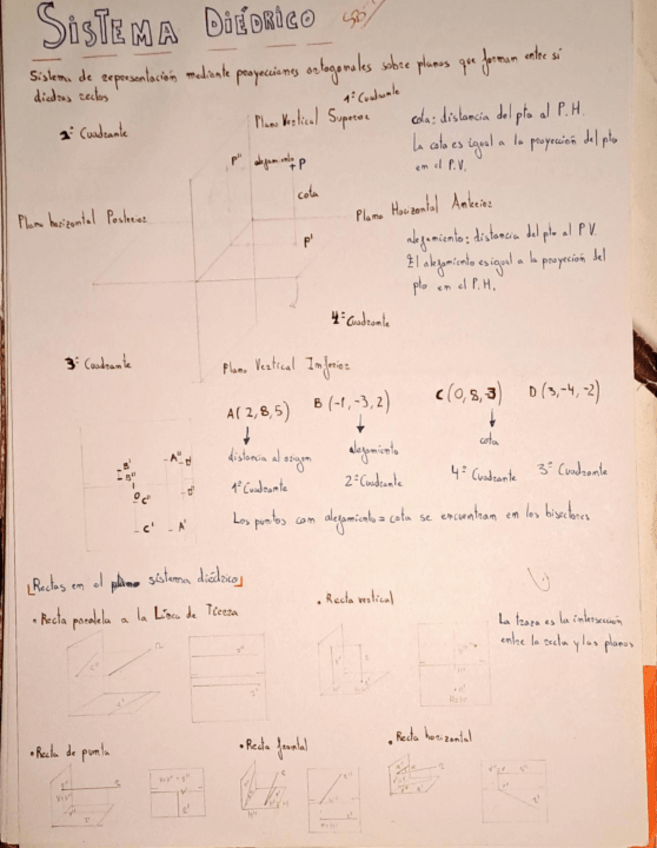 SISTEMA DIÉDRICO
Sistema de representación mediante proyecciones ortogonales sobre planos que forman entre sí
diedros rectos
1º Cuadrante
2º Cuadrante
Plano Vertical Superior
cota: distancia del pto al P.H.
La cota es igual a la proyección del pto
en el P.V.
P" alejamiento P
cota
Plano horizontal Posterior
Plano Horizontal Anterior
P'
alejamiento: distancia del pto al P.V.
El alejamiento es igual a la proyeción del
pto en el P.H.
4º Cuadrante
3º Cuadrante
Plano Vertical Inferior
A(2,8,5) B(-1,-3,2) C(0,8,-3) D(3,-4,-2)
distancia al origen
alejamiento
cota
1º Cuadrante
2º Cuadrante
4º Cuadrante
3º Cuadrante
B'
B"
A"
D'
O
C"
D"
C'
A'
Los puntos com alejamiento = cota se encuentram en los bisectores
Rectas en el sistema diédrico
• Recta paralela a la Línea de Tierra
• Recta vertical
La traza es la intersección
entre la recta y los planos
• Recta de punta
• Recta frontal
• Recta horizontal